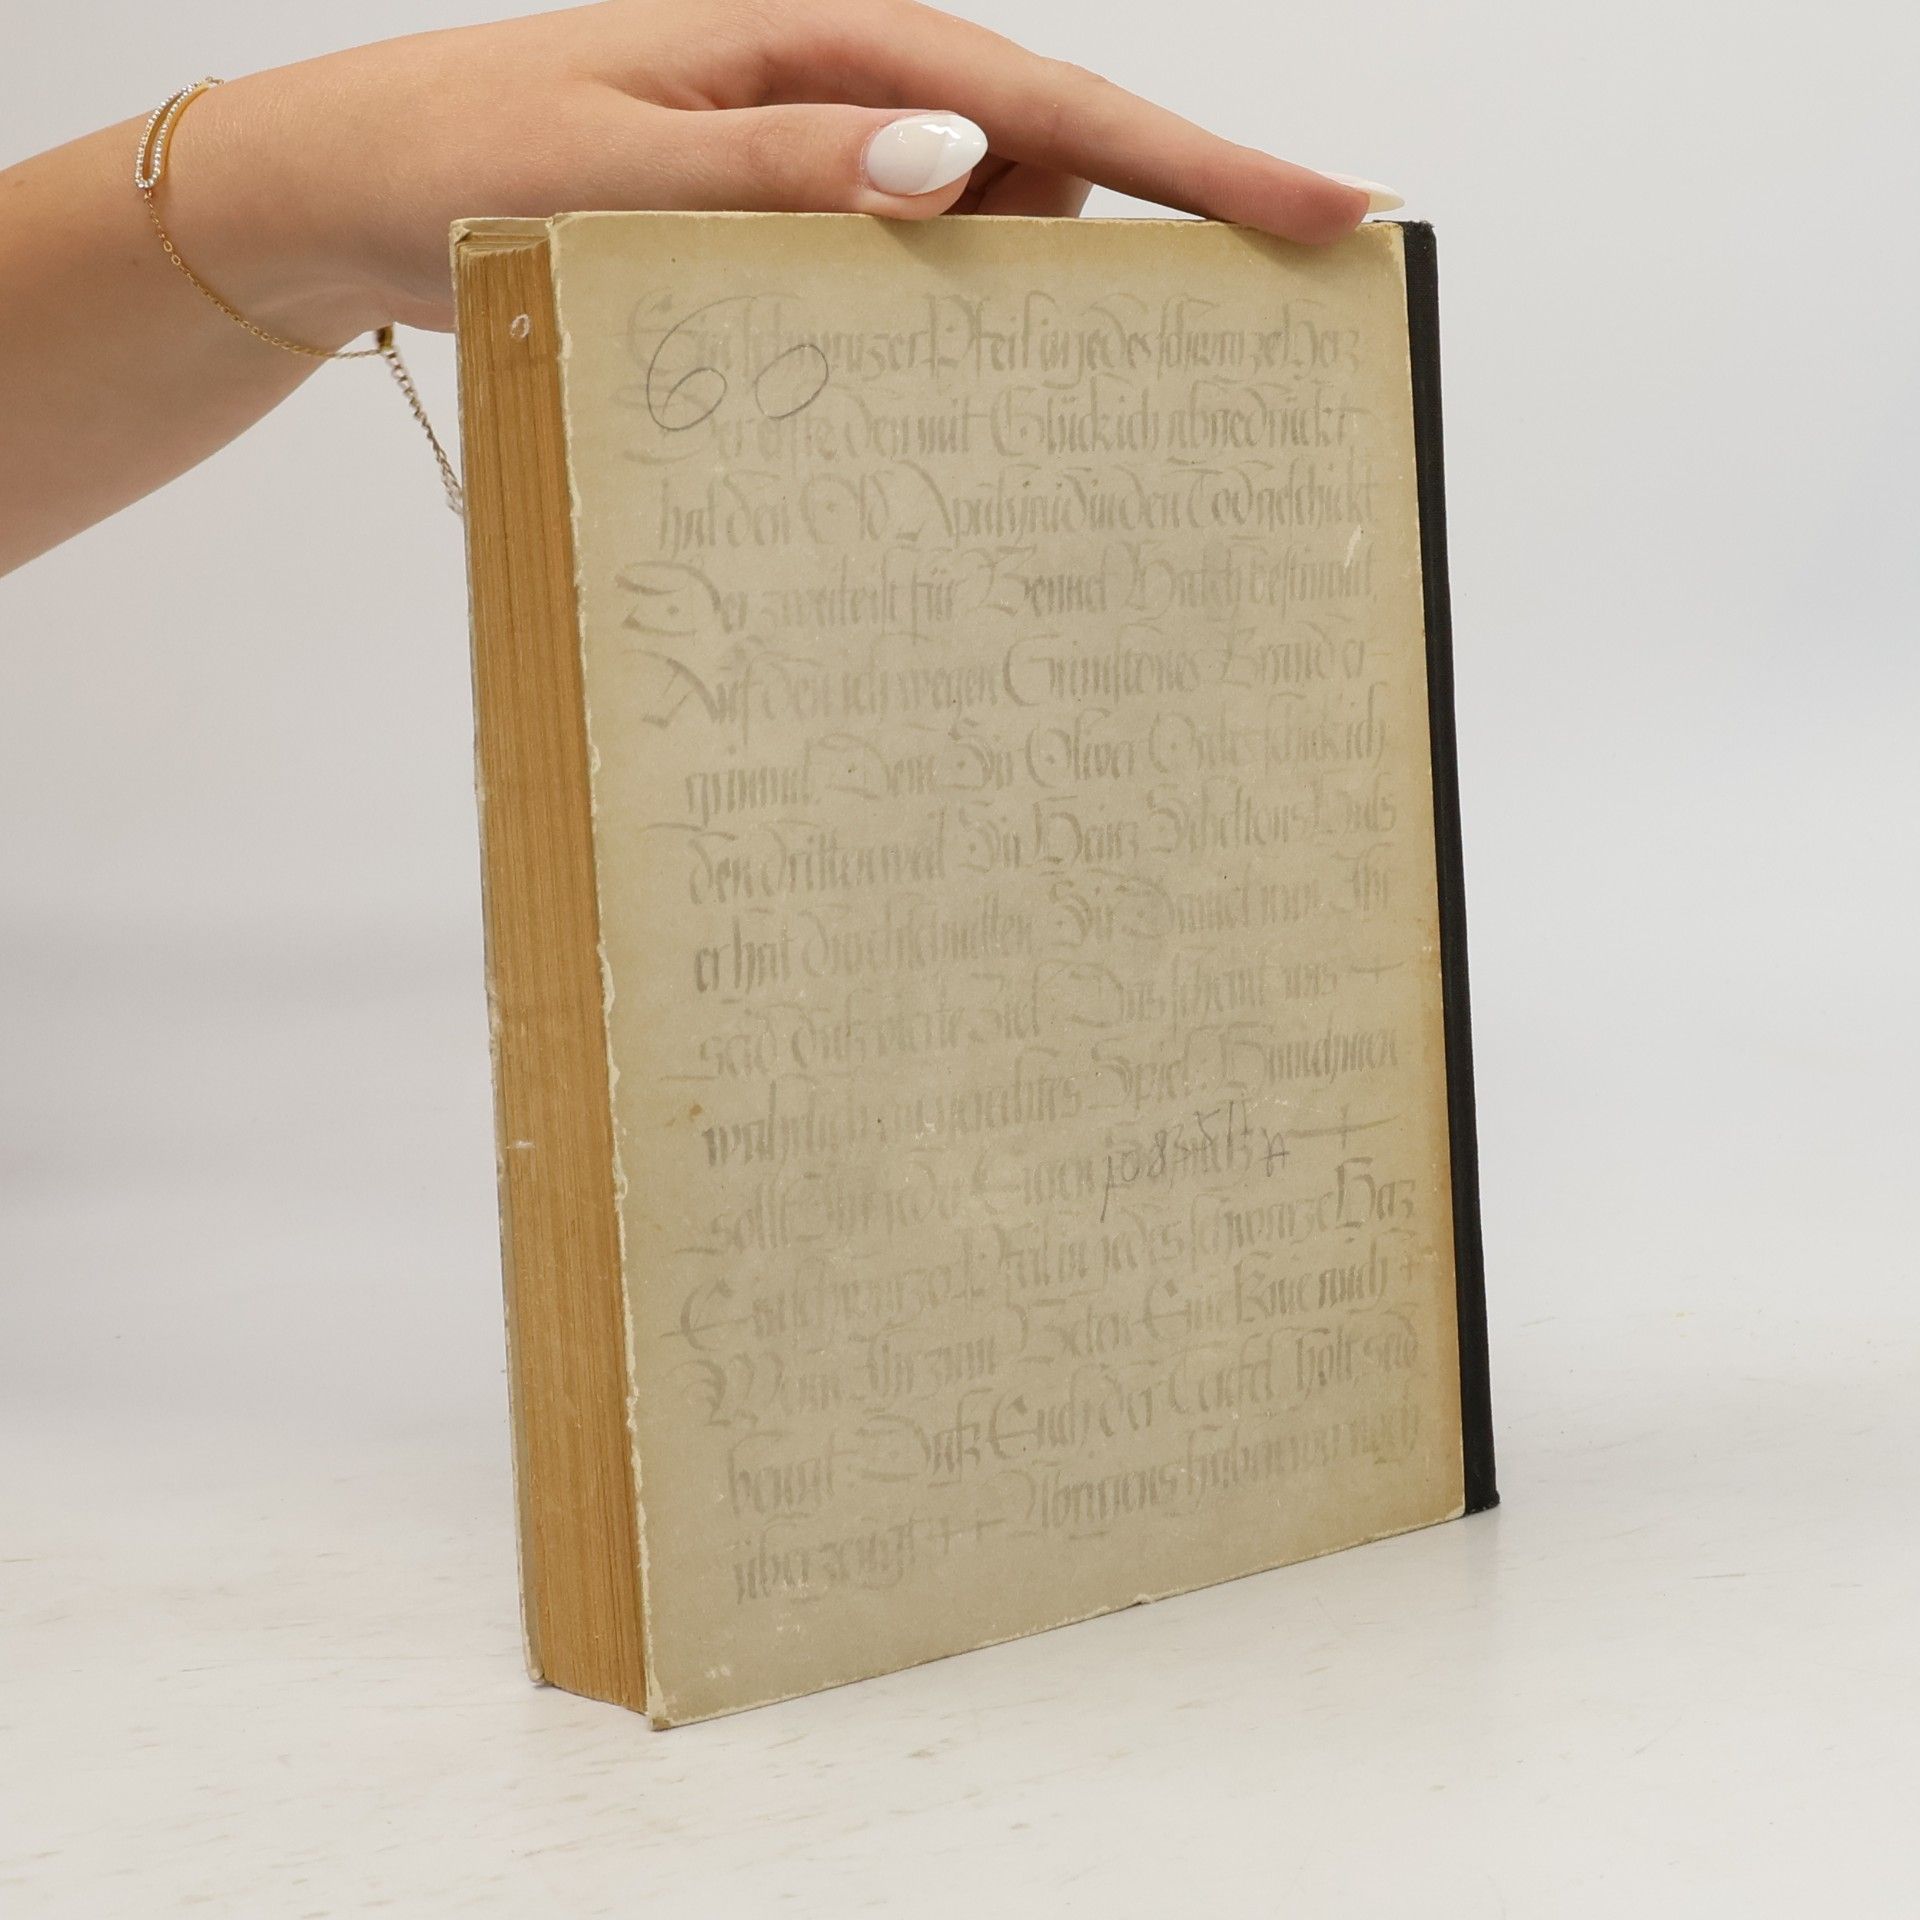 60
Ein schwarzer Pfeil in jedes schwarze Herz
Der erste den mit Glück ich abgedrückt
hat den Old Apulyard in den Tod geschickt
Der zweite ist für Bennet Hatch bestimmt,
Auf den ich wegen Grimstones Brand er-
grimmt. Dem Sir Oliver Oates schick ich
den dritten weil Sir Harry Scheltons Hals
er hat durchschnitten. Sir Daniel nun Ihr
seid das vierte Ziel. Das scheint uns +
wahrlich ein gerechtes Spiel.
sollt Ihr jeder Euren
Ein schwarzer Pfeil in jedes schwarze Herz
Wenn Ihr zum Beten Eure Knie auch +
beugt Daß Euch der Teufel holt, seid
überzeugt ++ Übrigens haben wir noch